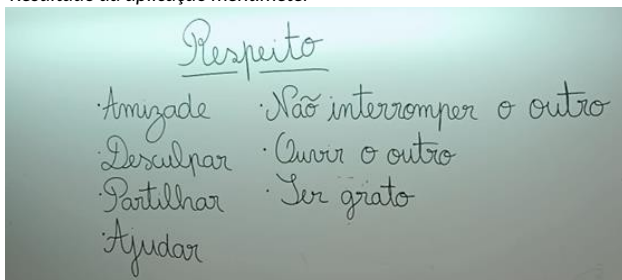 Respeito
· Amizade
· Desculpar
· Partilhar
· Ajudar
· Não interromper o outro
· Ouvir o outro
· Ser grato